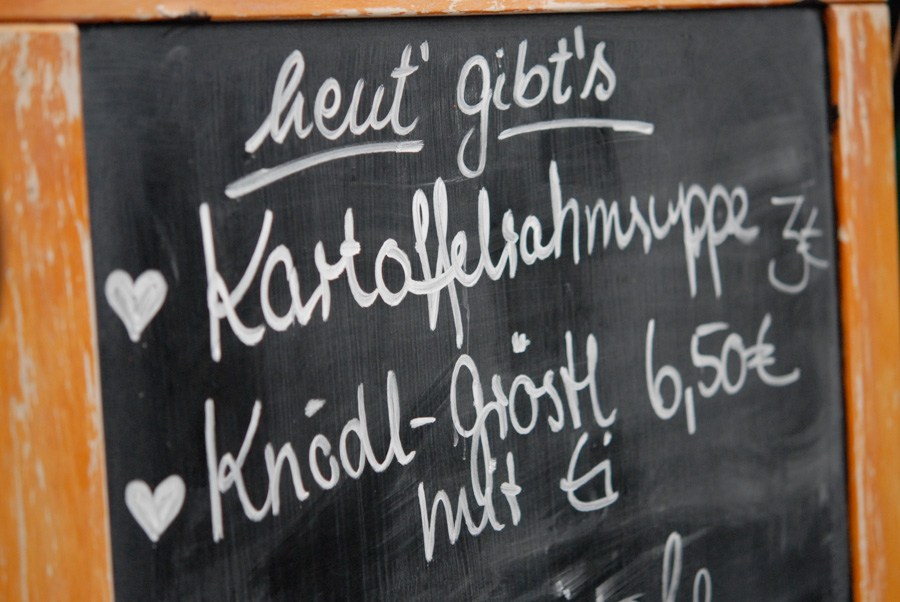 heut' gibt's
Kartoffelrahmsuppe 3€
Knödl-Gröstl 6,50€
mit Ei